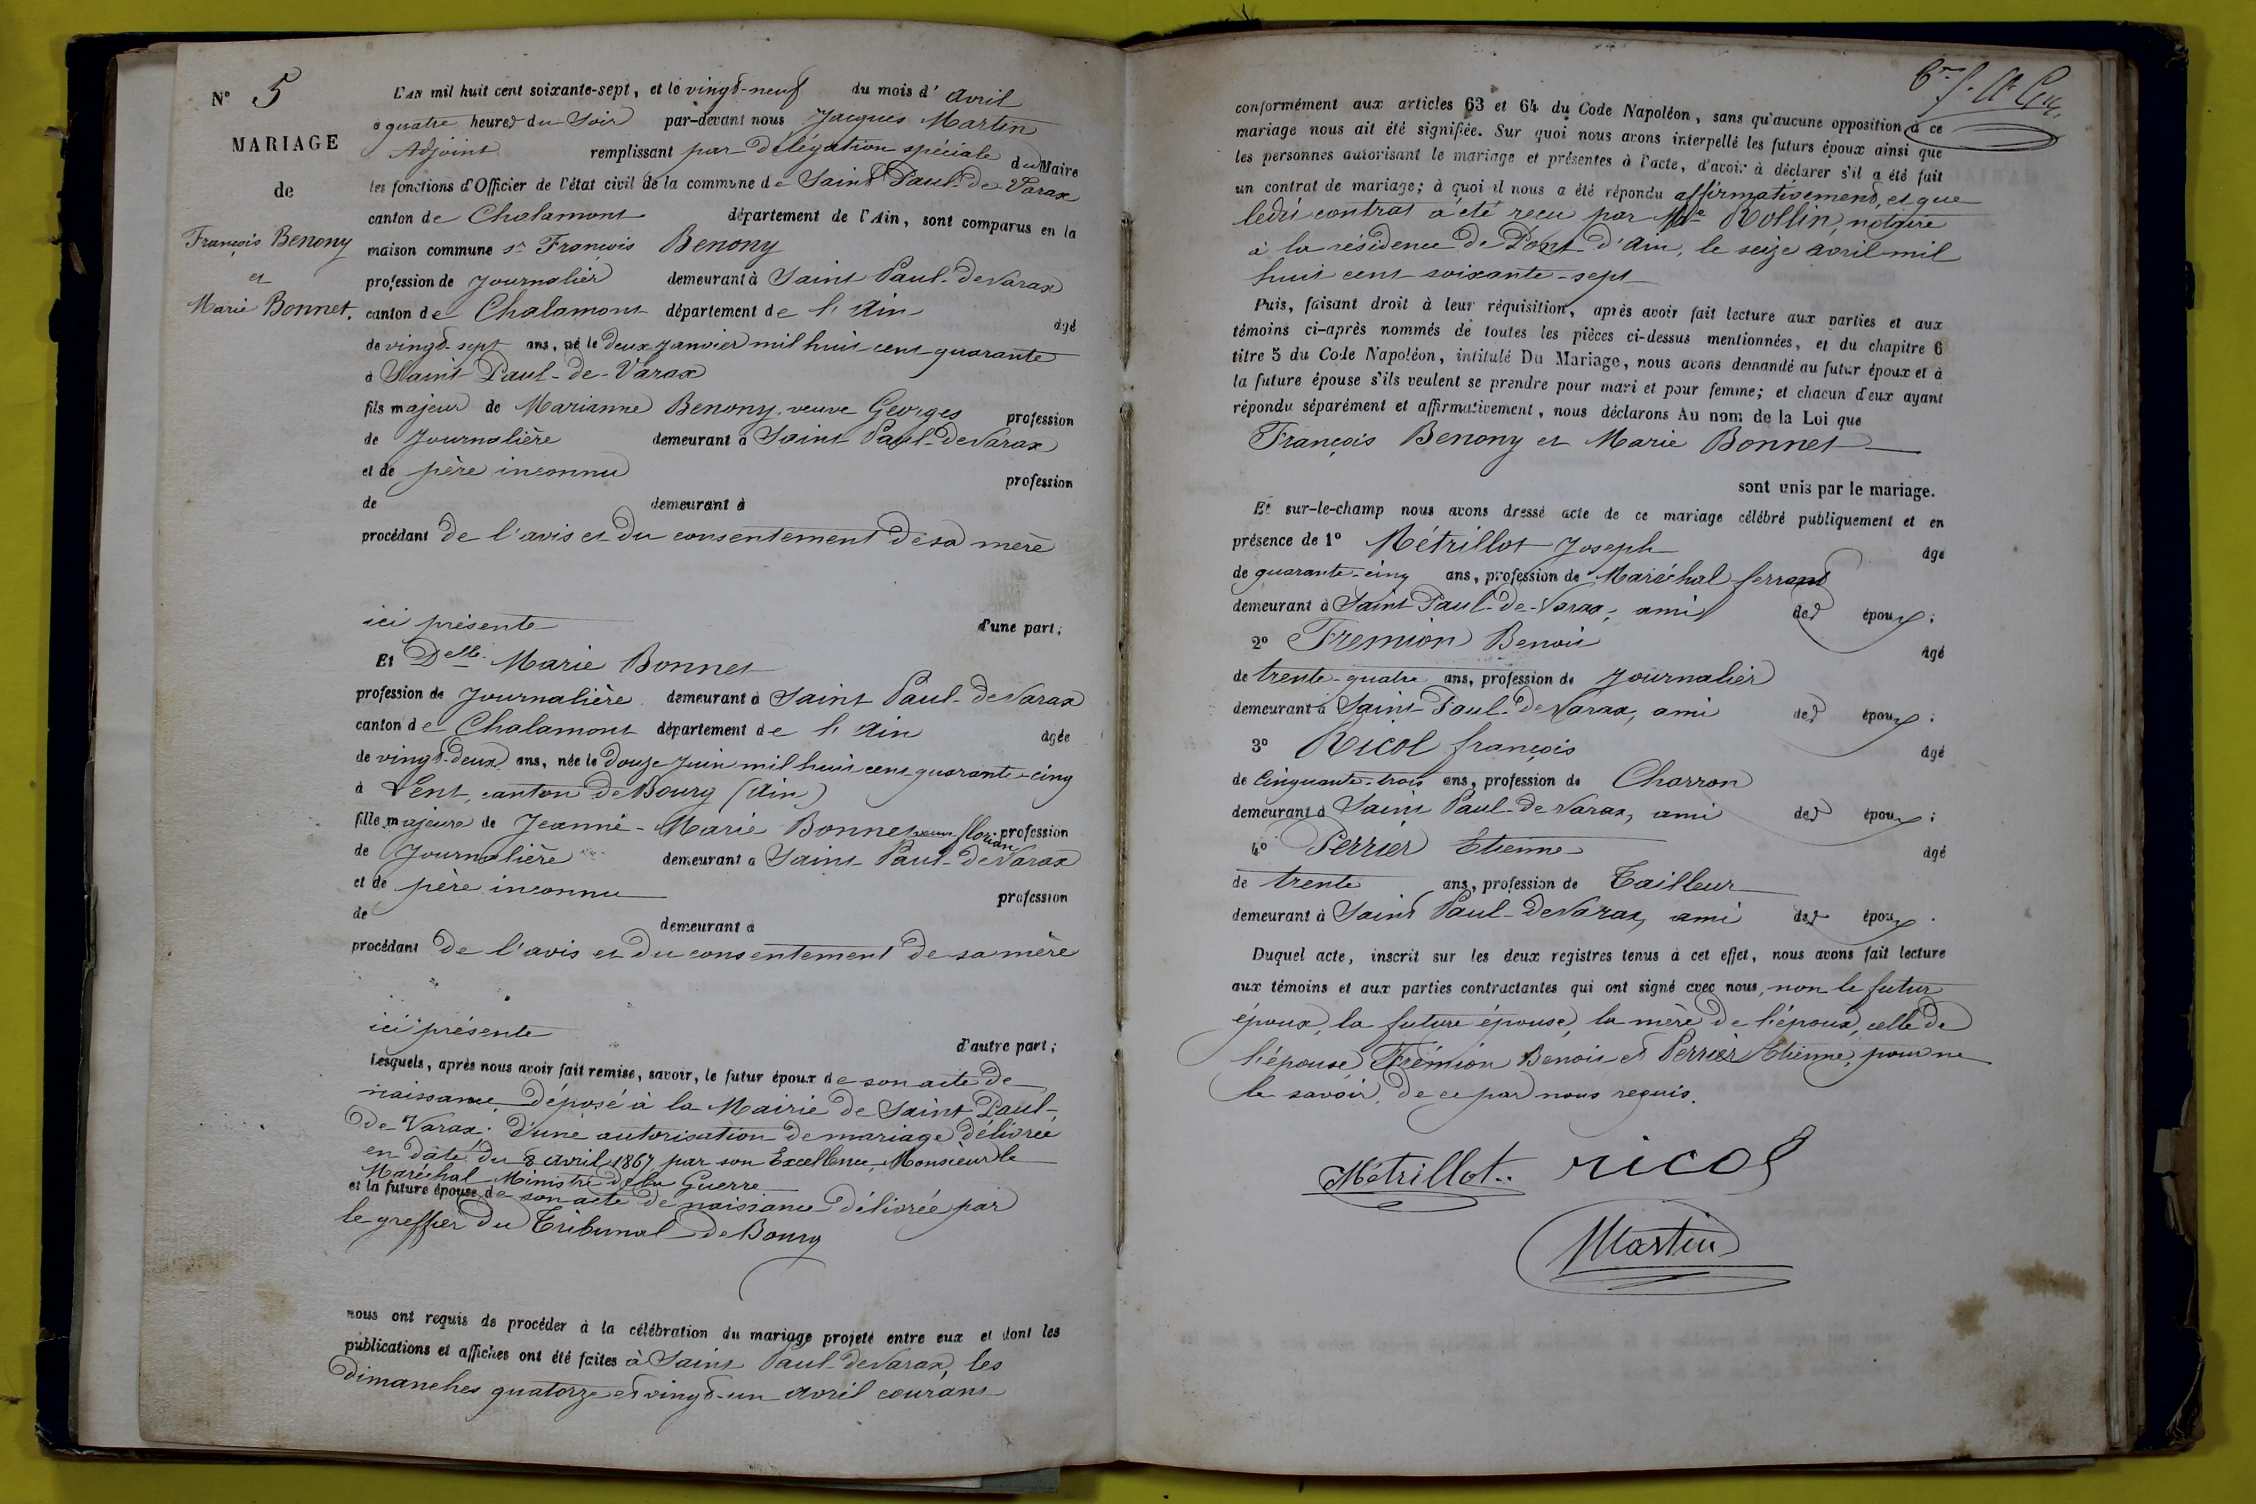 N° 5
MARIAGE
de
François Benony
et
Marie Bonnet.
L'an mil huit cent soixante-sept, et le vingt-neuf du mois d'avril
à quatre heures du Soir par-devant nous Jacques Martin
Adjoint remplissant par délégation spéciale du Maire
les fonctions d'Officier de l'état civil de la commune de Saint Paul-de-Varax
canton de Chalamont département de l'Ain, sont comparus en la
maison commune sr François Benony
profession de Journalier demeurant à Saint Paul-de Varax
canton de Chalamont département de l'Ain âgé
de vingt-sept ans, né le deux janvier mil huit cent quarante
à Saint Paul-de-Varax
fils majeur de Marianne Benony, veuve Georges profession
de Journalière demeurant à Saint Paul-de Varax
et de père inconnu profession
de demeurant à
procédant de l'avis et du consentement de sa mère
ici présente d'une part;
Et Delle Marie Bonnet
profession de Journalière demeurant à Saint Paul-de Varax
canton de Chalamont département de l'Ain âgée
de vingt-deux ans, née le douze Juin mil huit cent quarante-cinq
à Lent, canton de Bourg (Ain)
fille majeure de Jeanne-Marie Bonnet veuve florian profession
de Journalière demeurant à Saint Paul-de Varax
et de père inconnu profession
de demeurant à
procédant de l'avis et du consentement de sa mère
ici présente d'autre part;
Lesquels, après nous avoir fait remise, savoir, le futur époux de son acte de
naissance déposé à la Mairie de Saint Paul-
de-Varax. d'une autorisation de mariage délivrée
en date du 8 avril 1867 par son Excellence Monsieur le
Maréchal Ministre de la Guerre
et la future épouse de son acte de naissance délivrée par
le greffier du Tribunal de Bourg
nous ont requis de procéder à la célébration du mariage projeté entre eux et dont les
publications et affiches ont été faites à Saint Paul-de Varax, les
dimanches quatorze et vingt-un avril courant
conformément aux articles 63 et 64 du Code Napoléon, sans qu'aucune opposition à ce
mariage nous ait été signifiée. Sur quoi nous avons interpellé les futurs époux ainsi que
les personnes autorisant le mariage et présentes à l'acte, d'avoir à déclarer s'il a été fait
un contrat de mariage; à quoi il nous a été répondu affirmativement, et que
ledit contrat a été reçu par Me Rollin, notaire
à la résidence de Pont-d'Ain, le seize avril mil
huit cent soixante-sept
Puis, faisant droit à leur réquisition, après avoir fait lecture aux parties et aux
témoins ci-après nommés de toutes les pièces ci-dessus mentionnées, et du chapitre 6
titre 5 du Code Napoléon, intitulé Du Mariage, nous avons demandé au futur époux et à
la future épouse s'ils veulent se prendre pour mari et pour femme; et chacun d'eux ayant
répondu séparément et affirmativement, nous déclarons Au nom de la Loi que
François Benony et Marie Bonnet
sont unis par le mariage.
Et sur-le-champ nous avons dressé acte de ce mariage célébré publiquement et en
présence de 1° Métrillot Joseph âgé
de quarante-cinq ans, profession de Maréchal ferrant
demeurant à Saint Paul-de-Varax, ami des époux;
2° Fremion Benoit âgé
de trente-quatre ans, profession de Journalier
demeurant à Saint Paul-de Varax, ami des époux;
3° Ricol françois âgé
de Cinquante-trois ans, profession de Charron
demeurant à Saint Paul-de Varax, ami des époux;
4° Perrier Etienne âgé
de trente ans, profession de Tailleur
demeurant à Saint Paul-de Varax, ami des époux.
Duquel acte, inscrit sur les deux registres tenus à cet effet, nous avons fait lecture
aux témoins et aux parties contractantes qui ont signé avec nous, non le futur
époux, la future épouse, la mère de l'époux, celle de
l'épouse, Frémion Benoit et Perrier Etienne, pour ne
le savoir, de ce par nous requis.
Métrillot ricol
Martin